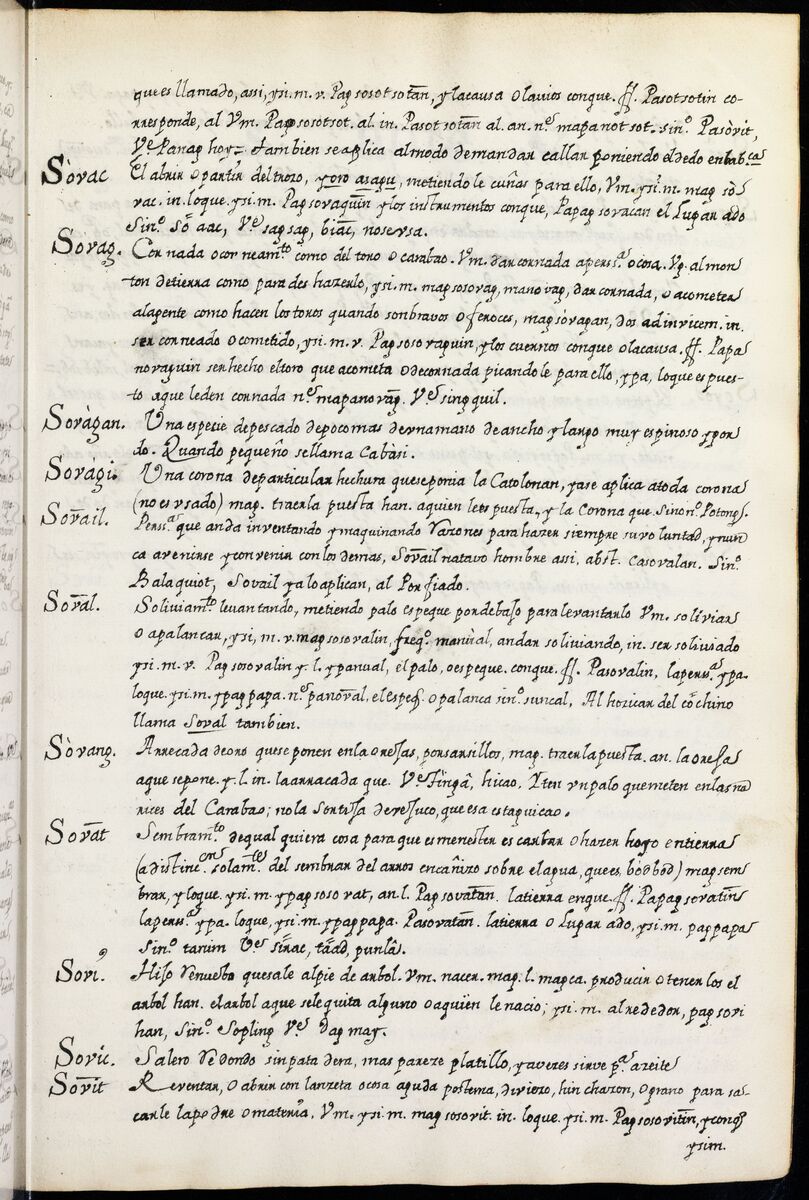 que es llamado, assi, ysi. m. v. Pag sosot sotan, y la causa o lavios conque. ff. Pasotsotin co-
rresponde, al Vm. Pagsosotsot. al. in. Pasot sotan al. an. nº mapanot sot. sinº. Pasòvit,
Vᵉ Panag hoy = tambien se aplica al modo de mandar callar poniendo el dedo en la bᶜᵃ
Sòvac El abrir o partir del trozo, y oro asapu, metiendole cuñas para ello, Vm. ysi. m. mag so
vac. in. loque. ysi. m. Pag sovaquin y los instrumentos conque, Papag sovacan el Lugar ado
Sinº. Sò aac, Vᵉ sapsap, biac, nose usa.
Sòvag. Cornada o corneamᵗᵒ como del toro o carabao. Vm. dar cornada a persˢᵃ o cosa. Vg. al mon
ton de tierra como para des hazerlo, ysi. m. mag sosovag, manovag, dar cornada, o acometer
a la gente como hacen los toros quando son bravos o feroces, mag sòvagan, dos ad invicem. in.
ser corneado o cometido, ysi. m. v. Pag soso vaguin, y los cuernos conque o la causa. ff. Papa
novaguin ser hecho el toro que acometa o de cornada picandole para ello, ypa, loque es pues-
to aque le den cornada nº mapanovag. Vᵉ singquil.
Sovàgan. Una especie de pescado de poco mas de una mano de ancho y largo muy espinoso y gor
do. Quando pequeño se llama Cabàsi.
Sovàgi. Una corona de particular hechura que se ponia la Catolonan, ya se aplica a toda corona
(no es usado) mag. traerla puesta han. a quien le es puesta, y la Corona que Sinonº. Potong.
Sovail. Persˢᵃ que anda inventando y maquinando razones para hazer siempre su voluntad, y nun
ca avenirse y convenir con los demas, Sovail na tavo hombre assi, abst. Casovalan. Sinº.
Balaquiot, Sovail ya lo aplican, al Porfiado.
Soval. Soliviamᵗᵒ levantando, metiendo palo espeque por debajo para levantarlo Vm. soliviar
o apalancar, ysi, m. v. mag sosovalin, freqº. manùal, andar soliviando, in. ser soliviado
ysi. m. v. Pag sosovalin y. l. ypanual, el palo, o espeque. conque. ff. Pasovalin, la persˢᵃ ypa.
loque. ysi. m. ypag papa. nº panoval, el espeqᵉ o palanca sinº. suncal, Al hozicar del cochino
llama Soval tambien.
Sòvang. Arrecada de oro que se ponen en la orejas, por sarsillos, mag. traerla puesta. an. la oreja
aque se pone. y. l. in. la arracada que. Vᵉ hicao. Yten un palo que meten en las na
rices del Carabao; no la Sortija de vejuco, que esa es taguicao.
Sovat Sembramᵗᵒ de qual quiera cosa para que es menester escarbar o hazer hoyo en tierra
(a distincᵒⁿ solamᵗᵉ del sembrar del arroz encañizo sobre el agua, que es bodbod) mag sem
brar, y loque. ysi. m. y pag soso vat, an. l. Pag sovatan. la tierra en que. ff. Papag sovatin
la persˢᵃ ypa. loque, ysi. m. ypag papa. Pasovatan. la tierra o Lugar ado, ysi. m. pag papa
Sinº. tanim Vᵉ sirac, taad, punla.
Sovi. Hijo Renuebo que sale al pie de arbol. Vm. nacer. mag. l. mapca. producir o tenerlos el
arbol han. el arbol aque se le quita alguno o a quien le nacio; ysi. m. al rededor, pag sovi
han, Sinº. Sopling Vᵉ Dag may.
Sovic. Salero Redondo sin patadera, mas pareze platillo, y a veces sirve pᵃ azeite
Sovit Reventar, o abrir con lanzeta o cosa aguda postema, divieso, hinchazon, o grano para sa-
carle la podre o materia, Vm. ysi. m. mag sosovit. in. loque. ysi. m. Pag soso vitin, y conqᵉ
ysim.